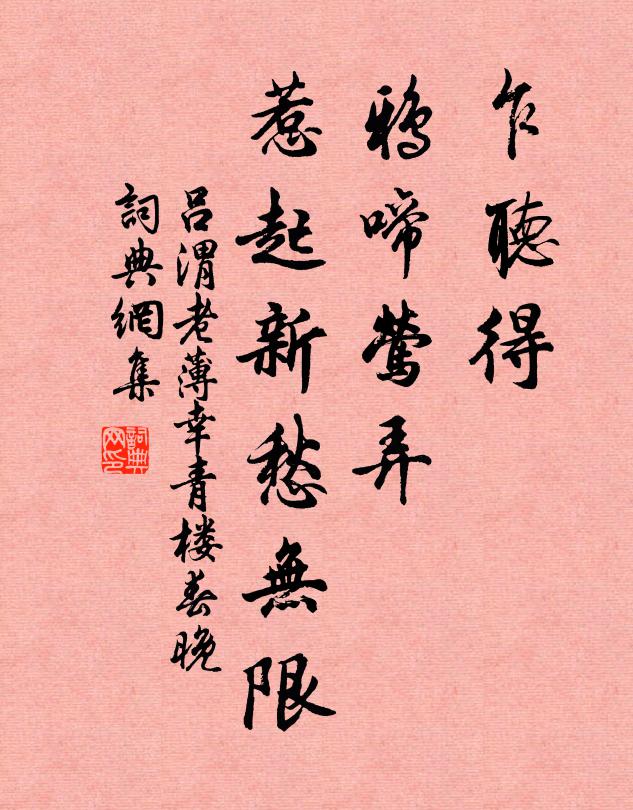 乍聽得
鴉啼鶯弄
惹起新愁無限
呂渭老薄幸青楼春晚
詞典網集
詞典
网印